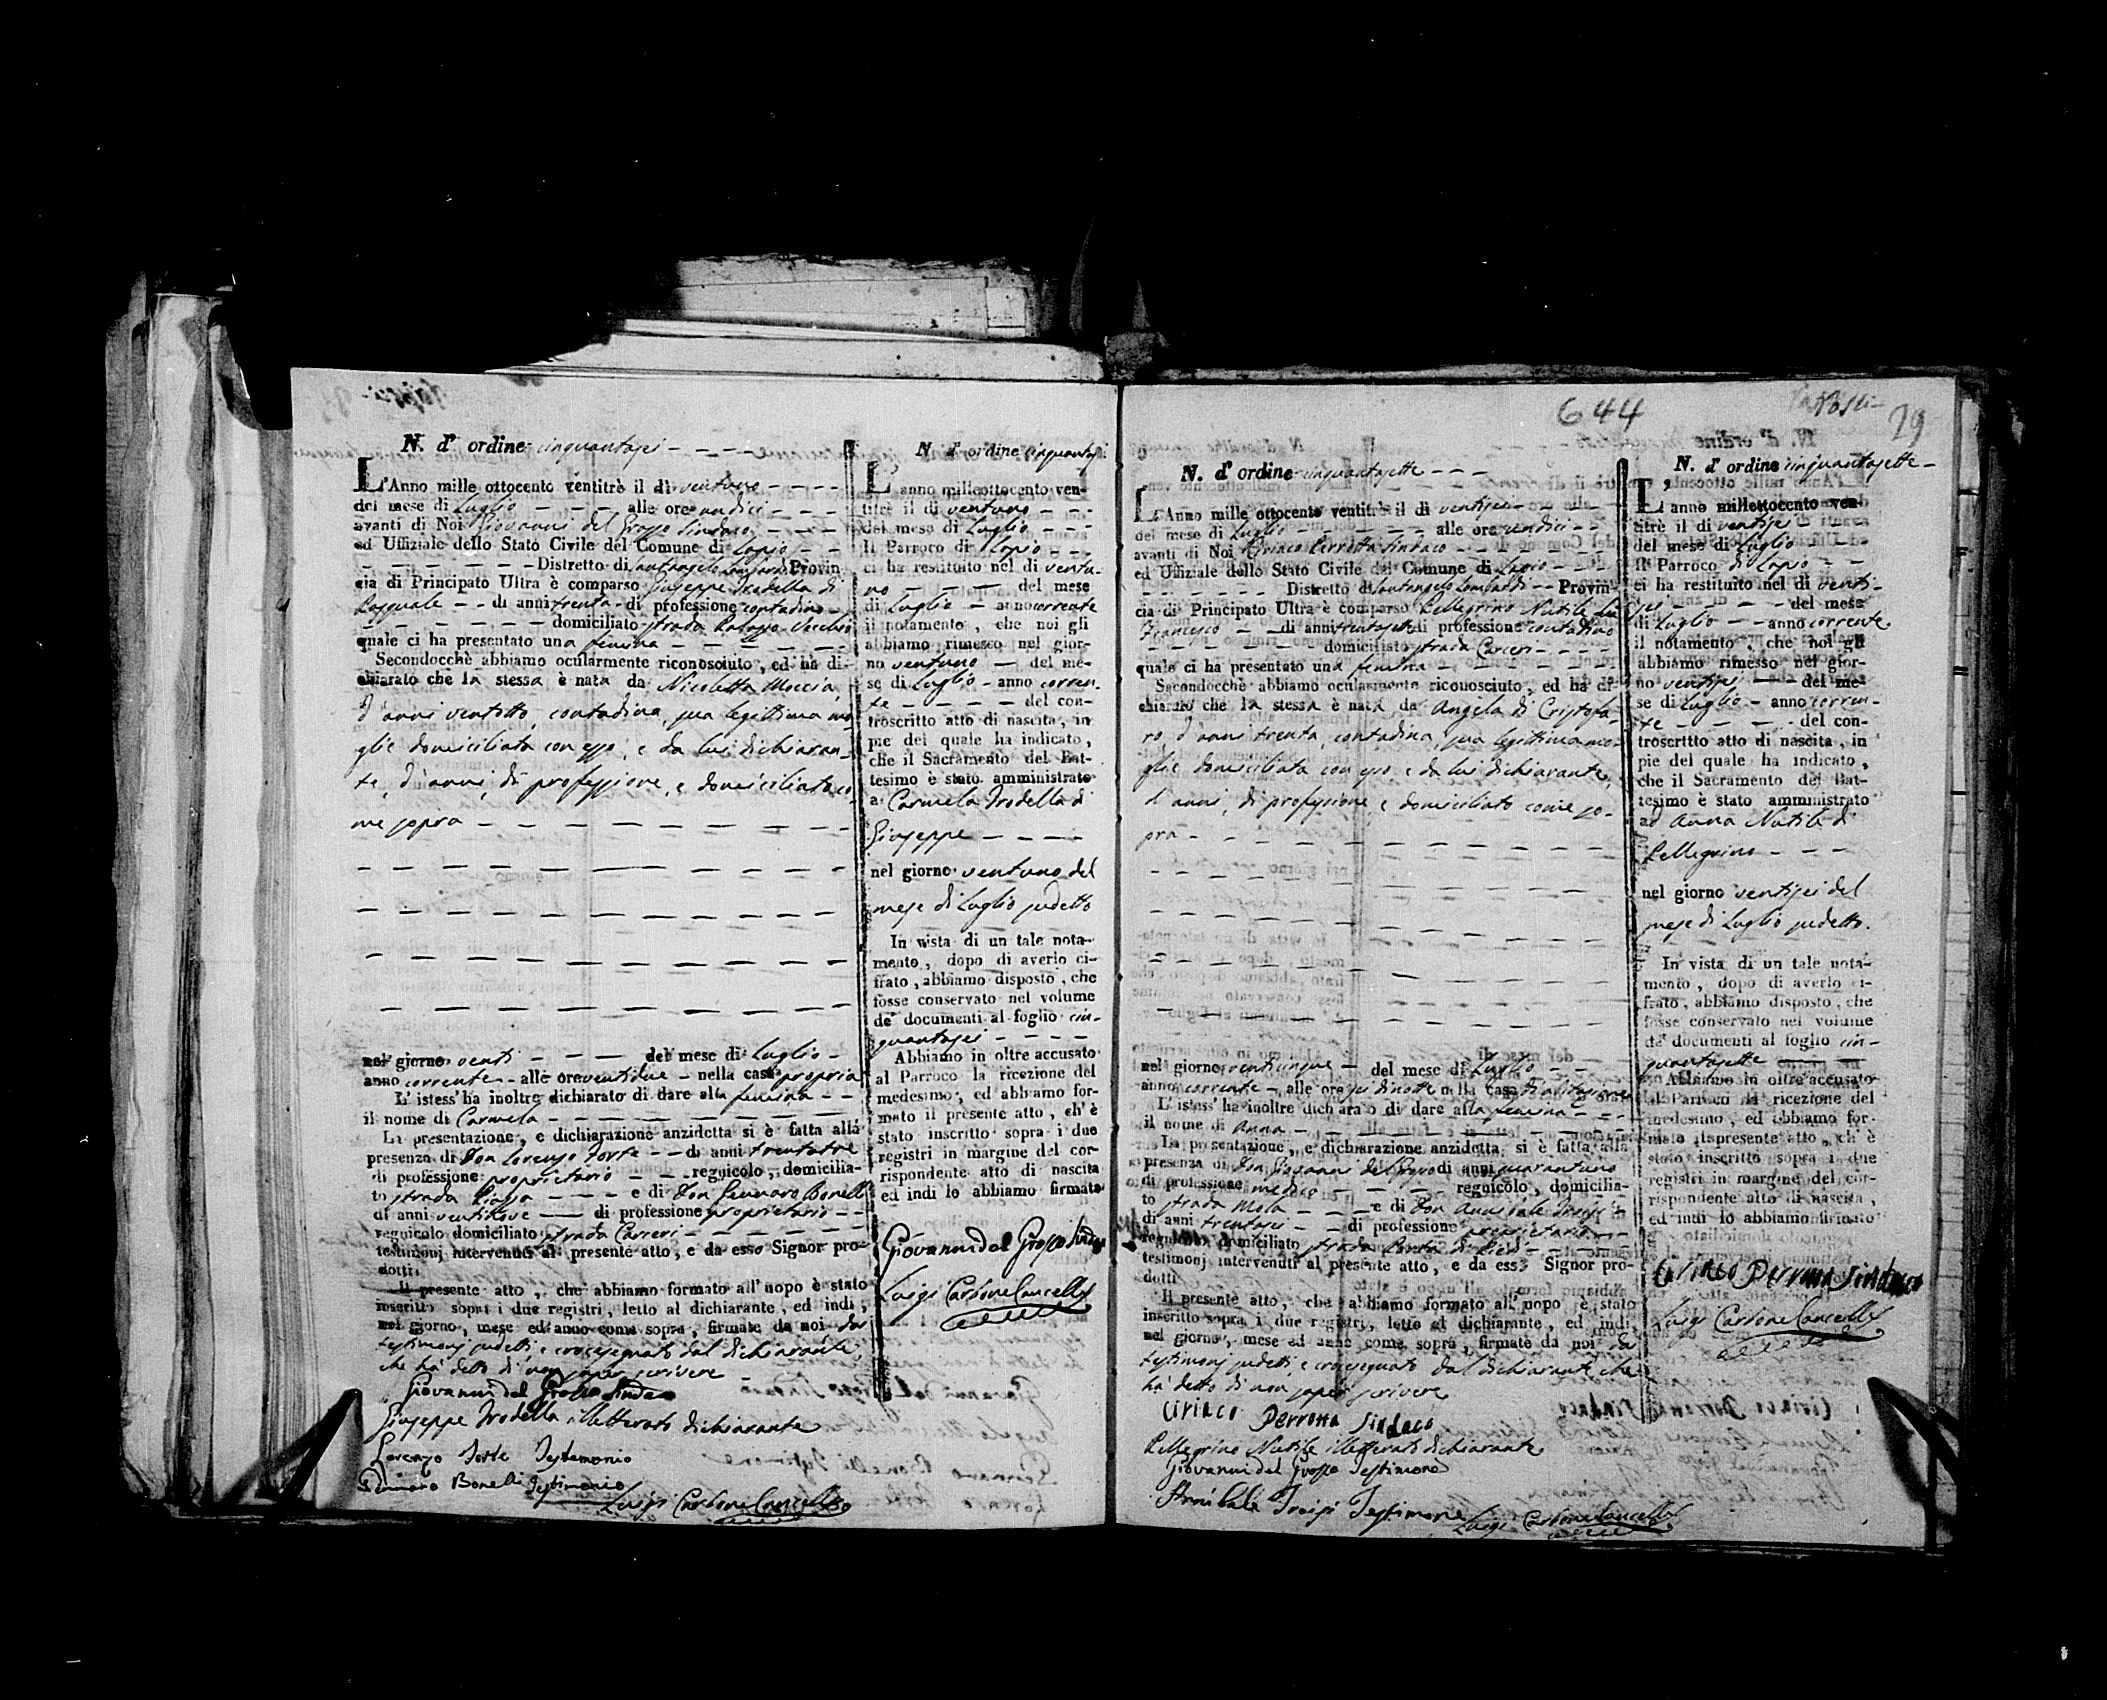 N. d' ordine cinquantasei
L'Anno mille ottocento ventitrè il dì ventuno
del mese di Luglio alle ore undici
avanti di Noi Giovanni del Grosso Sindaco
ed Uffiziale dello Stato Civile del Comune di Lapio
Distretto di Santangelo Lombardi Provin
cia di Principato Ultra è comparso Giuseppe Trodella di
Pasquale di anni trenta di professione contadino
domiciliato strada Palazzo Vecchio
quale ci ha presentato una femina
Secondocchè abbiamo ocularmente riconosciuto, ed ha di-
chiarato che la stessa è nata da Nicoletta Moccia
d'anni ventotto, contadina, sua legittima mo
glie domiciliata con esso, e da lui dichiaran-
te, d'anni, di professione, e domiciliato co-
me sopra
nel giorno venti del mese di Luglio
anno corrente alle ore ventidue nella casa propria
L' istess' ha inoltre dichiarato di dare alla femina
il nome di Carmela
La presentazione, e dichiarazione anzidetta si è fatta alla
presenza di Don Lorenzo Forte di anni trentatre
di professione proprietario regnicolo, domicilia-
to strada Piazza e di Don Gennaro Bonelli
di anni ventinove di professione proprietario
regnicolo domiciliato strada Carceri
testimonj intervenuti al presente atto, e da esso Signor pro-
dotti.
Il presente atto, che abbiamo formato all' uopo è stato
inscritto sopra i due registri, letto al dichiarante, ed indi,
nel giorno, mese ed anno come sopra, firmato da noi da
testimonj sudetti, e crocesegnato dal dichiarante,
che ha detto di non saper scrivere
Giovanni del Grosso Sindaco
Giuseppe Trodella illetterato dichiarante
Lorenzo Forte Testemonio
Gennaro Bonelli Testimonio
Luigi Carbone Cancell.
N. d' ordine cinquantasei
L' anno milleottocento ven-
titrè il dì ventuno
del mese di Luglio
Il Parroco di Lapio
ci ha restituito nel dì ventu-
no del mese
di Luglio anno corrente
il notamento, che noi gli
abbiamo rimesso nel gior-
no ventuno del me-
se di Luglio anno corren-
te del con-
troscritto atto di nascita, in
pie del quale ha indicato,
che il Sacramento del Bat-
tesimo è stato amministrato
a Carmela Trodella di
Giuseppe
nel giorno ventuno del
mese di Luglio sudetto
In vista di un tale nota-
mento, dopo di averlo ci-
frato, abbiamo disposto, che
fosse conservato nel volume
de' documenti al foglio cin-
quantasei
Abbiamo in oltre accusato
al Parroco la ricezione del
medesimo, ed abbiamo for-
mato il presente atto, ch' è
stato inscritto sopra i due
registri in margine del cor-
rispondente atto di nascita
ed indi lo abbiamo firmato
Giovanni del Grosso Sindaco
Luigi Carbone Cancell.
644
29
N. d' ordine cinquantasette
L'Anno mille ottocento ventitrè il dì ventisei
del mese di Luglio alle ore undici
avanti di Noi Ciriaco Perrotta Sindaco
ed Uffiziale dello Stato Civile del Comune di Lapio
Distretto di Santangelo Lombardi Provin-
cia di Principato Ultra è comparso Pellegrino Nutile di
Francesco di anni trentasette di professione contadino
domiciliato strada Carceri
quale ci ha presentato una femina
Secondocchè abbiamo ocularmente riconosciuto, ed ha di-
chiarato che la stessa è nata da Angela di Cristofa-
ro d'anni trenta, contadina, sua legittima mo-
glie domiciliata con esso, e da lui dichiarante,
d'anni, di professione, e domiciliato come so-
pra
nel giorno venticinque del mese di Luglio
anno corrente alle ore sedici nella casa di abitazione
L' istess' ha inoltre dichiarato di dare alla femina
il nome di Anna
La presentazione, e dichiarazione anzidetta si è fatta alla
presenza di Don Giovanni del Grosso di anni quarantuno
di professione medico regnicolo, domicilia-
to strada Mola e di Don Annibale Troisi
di anni trentasei di professione proprietario
regnicolo domiciliato strada Porta di Piedi
testimonj intervenuti al presente atto, e da esso Signor pro-
dotti
Il presente atto, che abbiamo formato all' uopo è stato
inscritto sopra i due registri, letto al dichiarante, ed indi
nel giorno, mese ed anno come sopra, firmato da noi da
testimonj sudetti, e crocesegnato dal dichiarante che
ha detto di non saper scrivere
Ciriaco Perrotta Sindaco
Pellegrino Nutile illetterato dichiarante
Giovanni del Grosso Testimone
Annibale Troisi Testimone
Luigi Carbone Cancell.
N. d' ordine cinquantasette
L' anno millettocento ven-
titrè il dì ventisei
del mese di Luglio
Il Parroco di Lapio
ci ha restituito nel dì venti-
sei del mese
di Luglio anno corrente
il notamento, che noi gli
abbiamo rimesso nel gior-
no ventisei del me-
se di Luglio anno corren-
te del con-
troscritto atto di nascita, in
pie del quale ha indicato,
che il Sacramento del Bat-
tesimo è stato amministrato
ad Anna Nutile di
Pellegrino
nel giorno ventisei del
mese di Luglio sudetto.
In vista di un tale nota-
mento, dopo di averlo ci-
frato, abbiamo disposto, che
fosse conservato nel volume
de' documenti al foglio cin-
quantasette
Abbiamo in oltre accusato
al Parroco la ricezione del
medesimo, ed abbiamo for-
mato il presente atto, ch' è
stato inscritto sopra i due
registri in margine del cor-
rispondente atto di nascita,
ed indi lo abbiamo firmato
Ciriaco Perrotta Sindaco
Luigi Carbone Cancell.